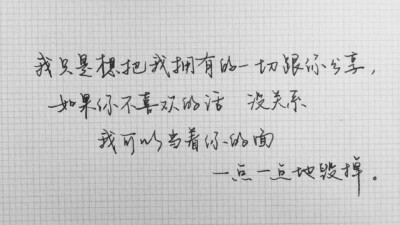 我只是想把我拥有的一切跟你分享，
如果你不喜欢的话 没关系
我可以当着你的面
一点一点地毁掉。